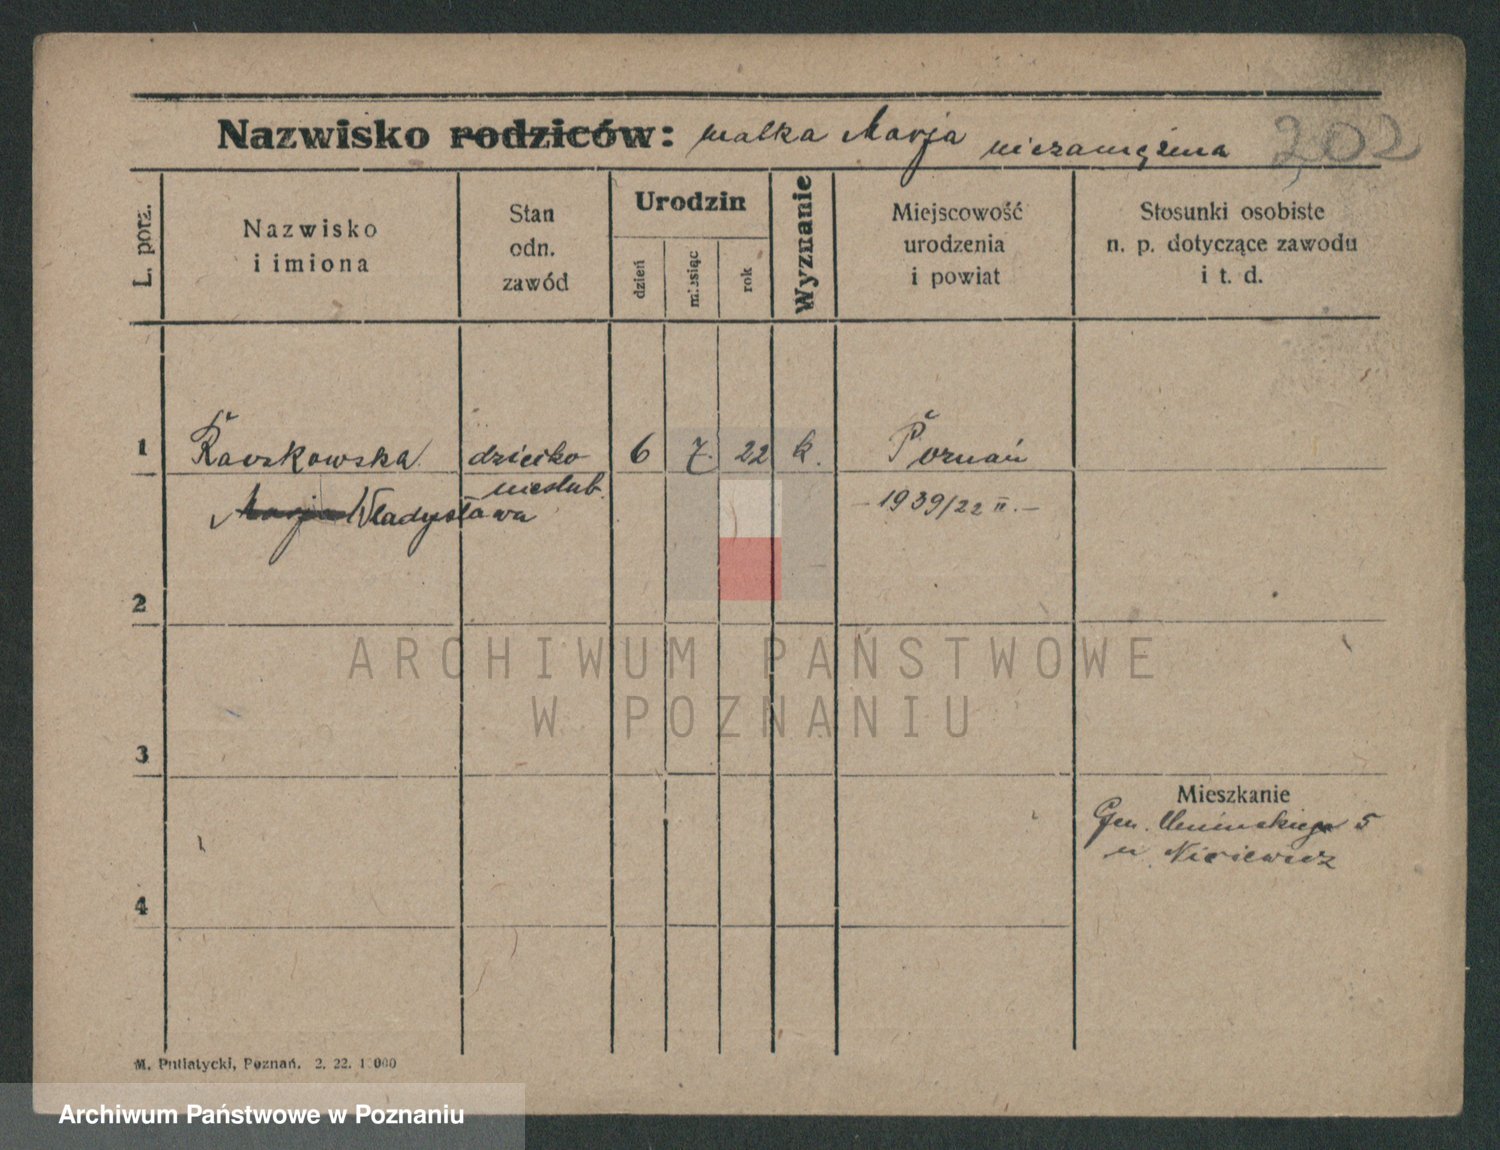 Nazwisko rodziców: matka Marja niezamężna 202
L. porz.
Nazwisko
i imiona
Stan
odn.
zawód
Urodzin
dzień
miesiąc
rok
Wyznanie
Miejscowość
urodzenia
i powiat
Stosunki osobiste
n. p. dotyczące zawodu
i t. d.
1 dziecko 6 7. 22 k. Poznań
nieślub.
Marja Władysława
- 1939/22 II. -
2
ARCHIWUM PAŃSTWOWE
W POZNANIU
3
Mieszkanie
Gen. Umińskiego 5
u
4
M. Putiatycki, Poznań. 2. 22. 1 000
Archiwum Państwowe w Poznaniu